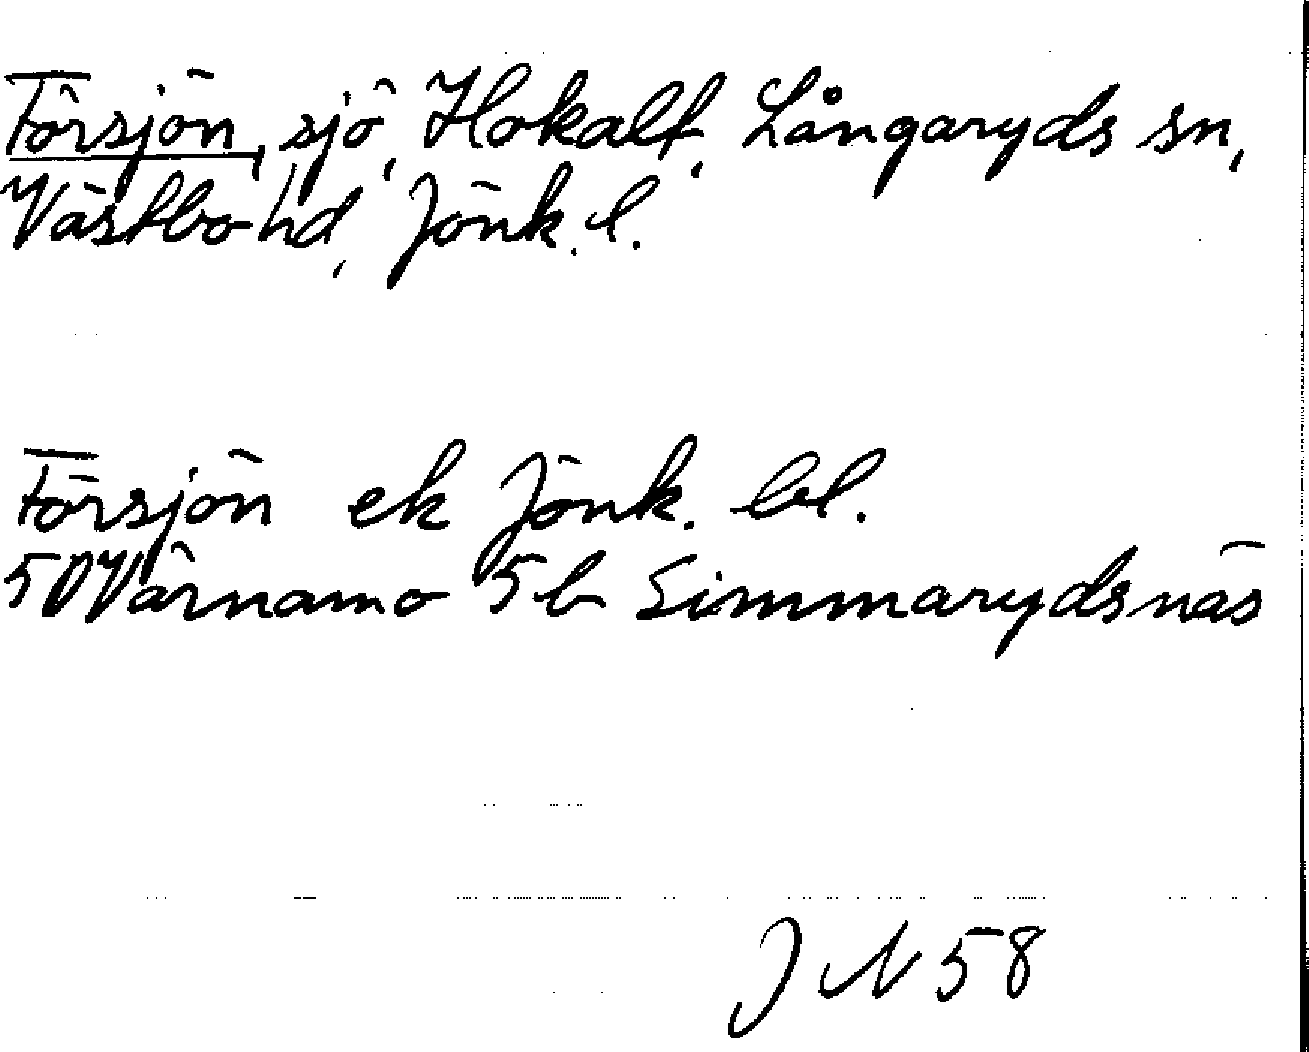 Försjön, sjö, Hokalt, Långaryds sn,
Västbo hd, Jönk. l.
Försjön ek Jönk. bl.
5D Värnamo 5b Simmarydsnäs
JN 58